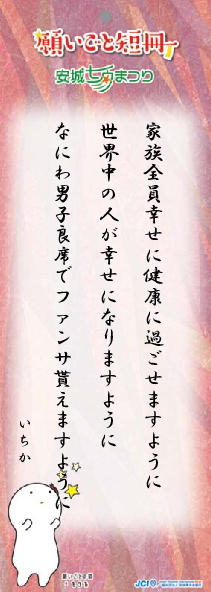 願いごと短冊
安城七夕まつり
家族全員幸せに健康に過ごせますように
世界中の人が幸せになりますように
なにわ男子良席でファンサ貰えますように
いちか
願いごと短冊
JCI